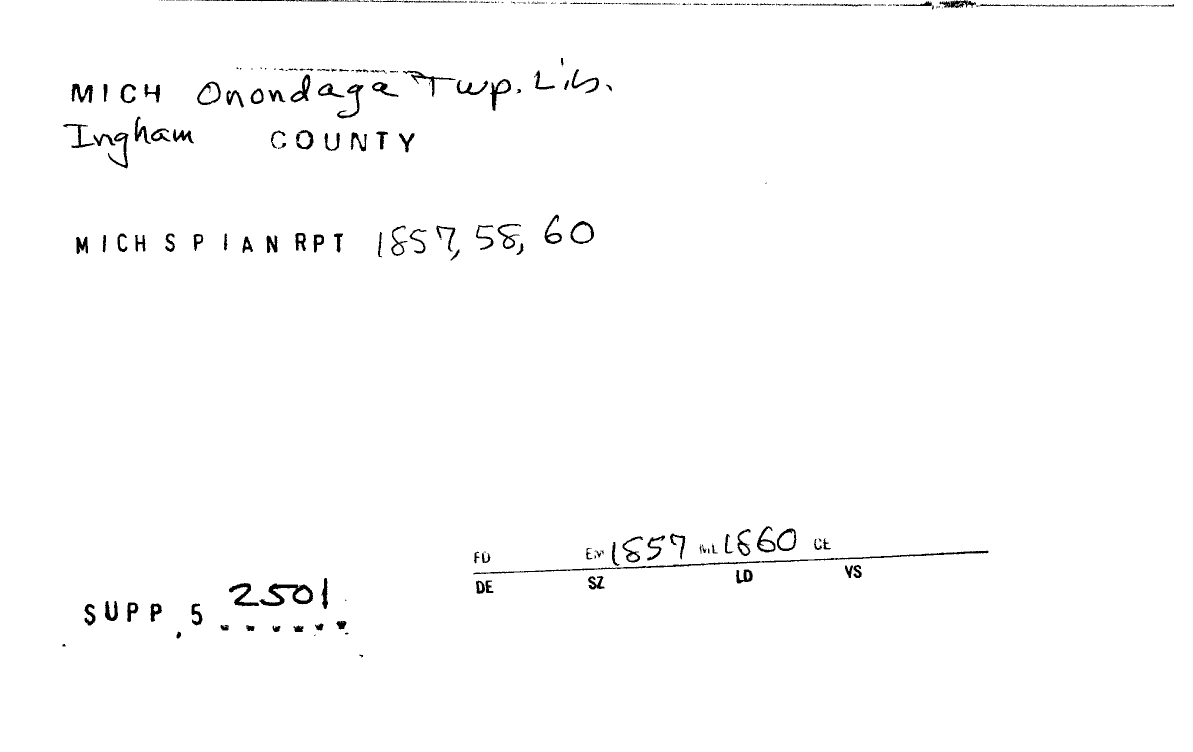 MICH Onondaga Twp. Lib.
Ingham COUNTY
MICH S P I A N RPT 1857, 58, 60
FD EM 1857 ML 1860 CE
DE SZ LD VS
SUPP, 5 2501